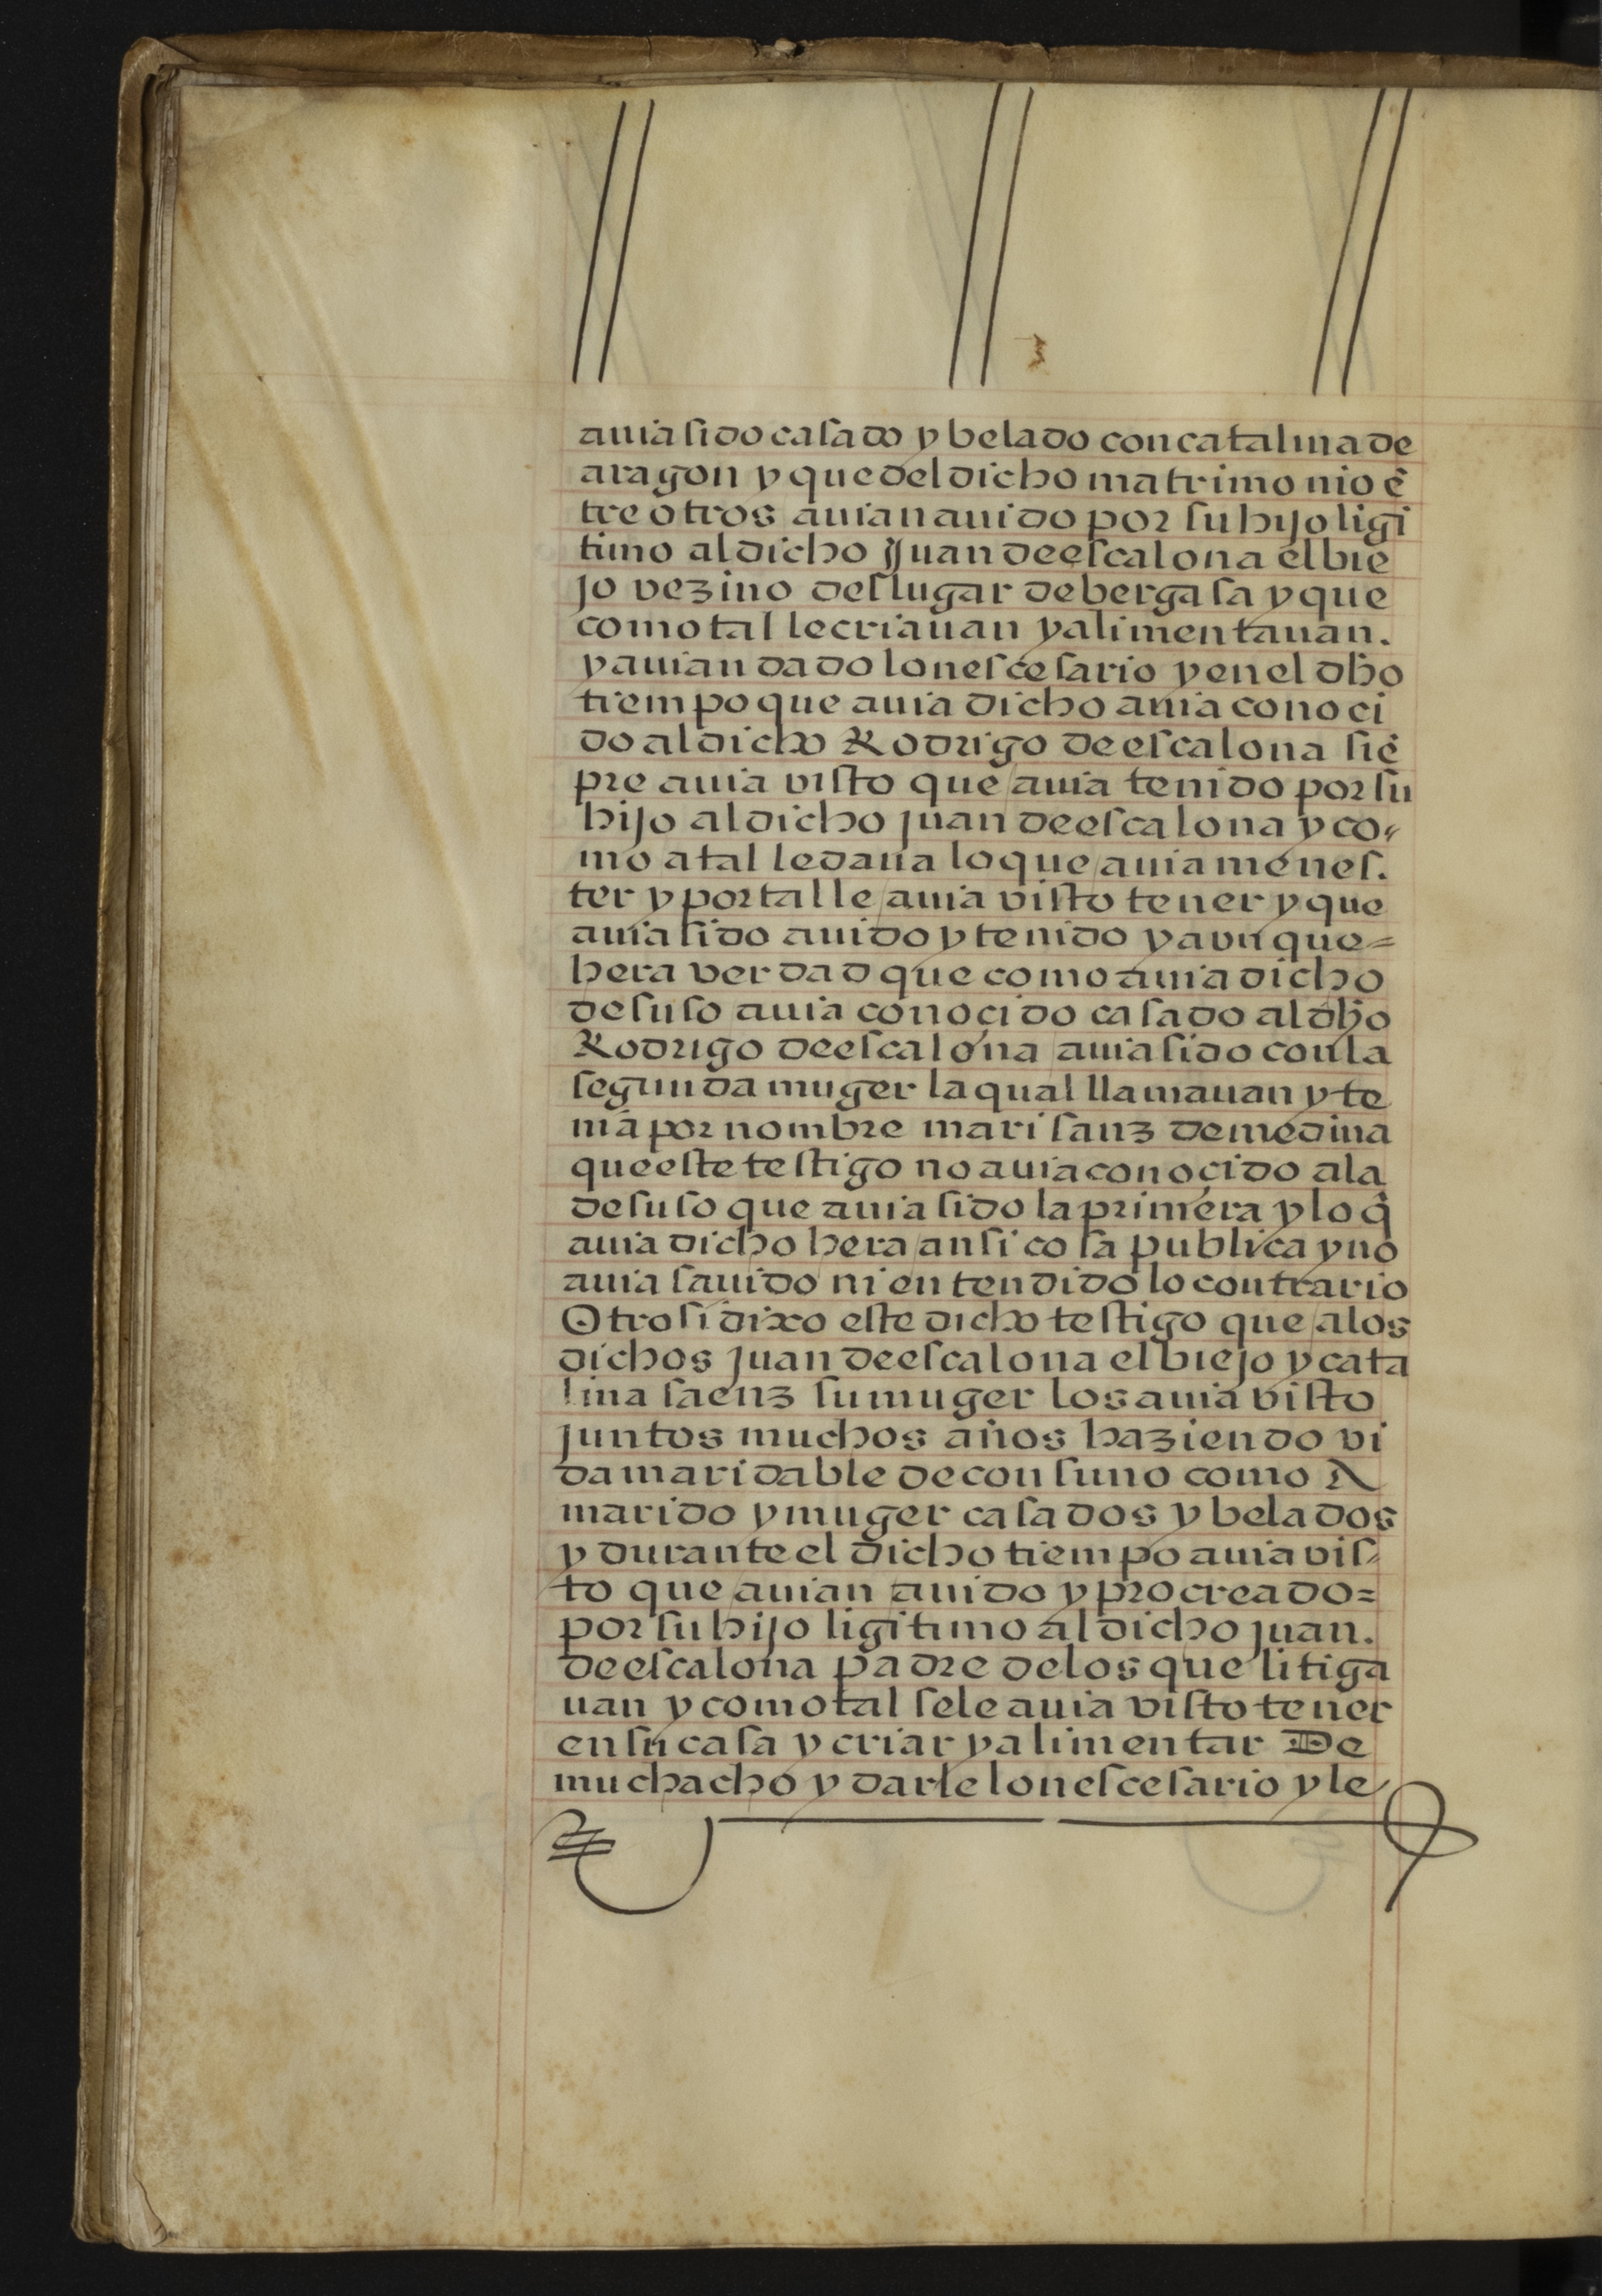 auia sido casado y belado con catalina de
aragon y que del dicho matrimonio ẽ
tre otros auian auido por su hijo ligi
timo al dicho Juan de escalona el bie
jo vezino del lugar de bergasa y que
como tal le criauan y alimentauan.
y auian dado lo nescesario y en el dho
tiempo que auia dicho auia conoci
do al dicho Rodrigo de escalona siẽ
pre auia visto que auia tenido por su
hijo al dicho juan de escalona y co-
mo a tal le daua lo que auia menes.
ter y por tal le auia visto tener y que
auia sido auido y tenido y avn que=
hera verdad que como auia dicho
de suso auia conoçido casado al dho
Rodrigo de escalona auia sido con la
segunda muger la qual llamauan y te
nia por nombre mari sanz de medina
que este testigo no auia conoçido a la
de suso que auia sido la primera y lo q̃
auia dicho hera ansi cosa publica y no
auia sauido ni entendido lo contrario
Otrosi dixo este dicho testigo que a los
dichos juan de escalona el biejo y cata
lina saenz su muger los auia visto
juntos muchos años haziendo vi
da maridable de consuno como A
marido y muger casados y belados
y durante el dicho tiempo auia vis-
to que auian auido y procreado=
por su hijo ligitimo al dicho juan.
de escalona padre de los que litiga
uan y como tal se le auia visto tener
en su casa y criar y alimentar De
muchacho y darle lo nescesario y le